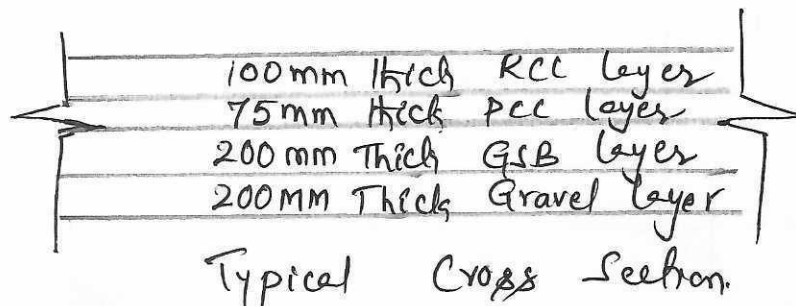 100mm thick RCC layer
75mm thick PCC layer
200mm Thick GSB layer
200MM Thick Gravel layer
Typical Cross Section.